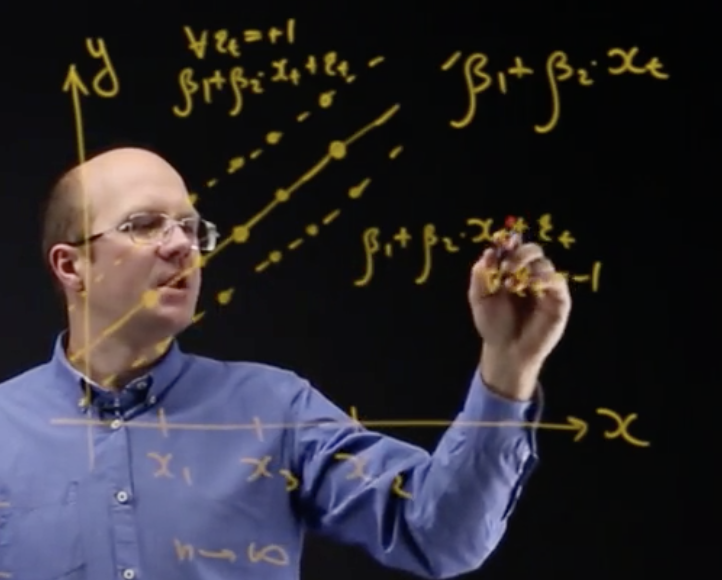 y
∀ε_t=+1
β₁+β₂·x_t+ε_t
β₁+β₂·x_t
β₁+β₂·x_t+ε_t
∀ε_t=-1
x
x₁ x₃ x₂
n→∞